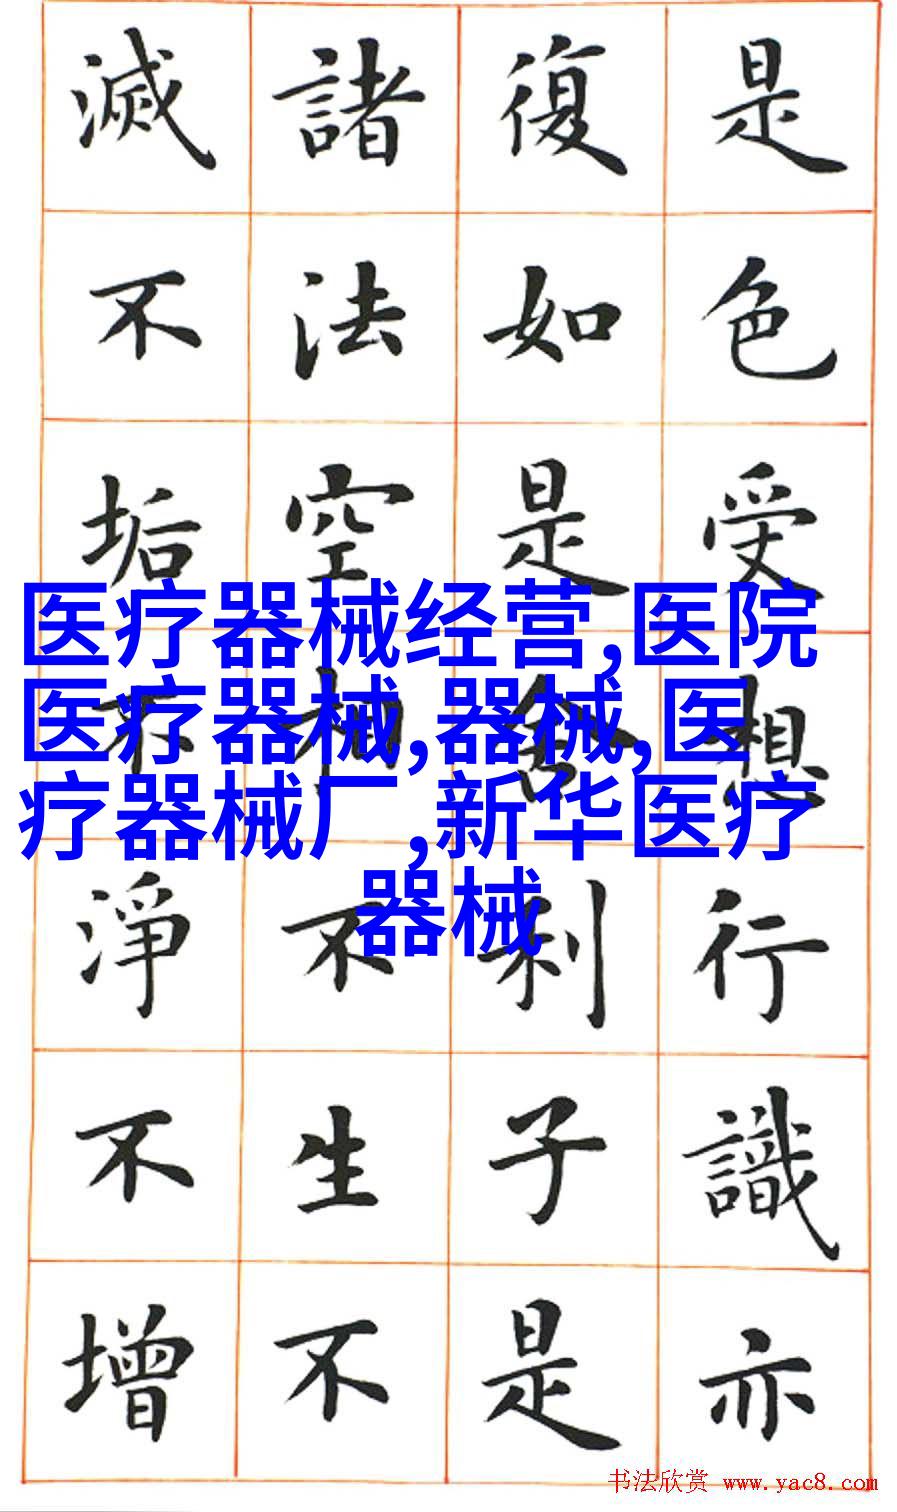 是色受想行識亦
復如是舍利子是
諸法空相不生不
滅不垢不淨不增
医疗器械经营,医院
医疗器械,器械,医
疗器械厂,新华医疗
器械
书法欣赏 www.yac8.com